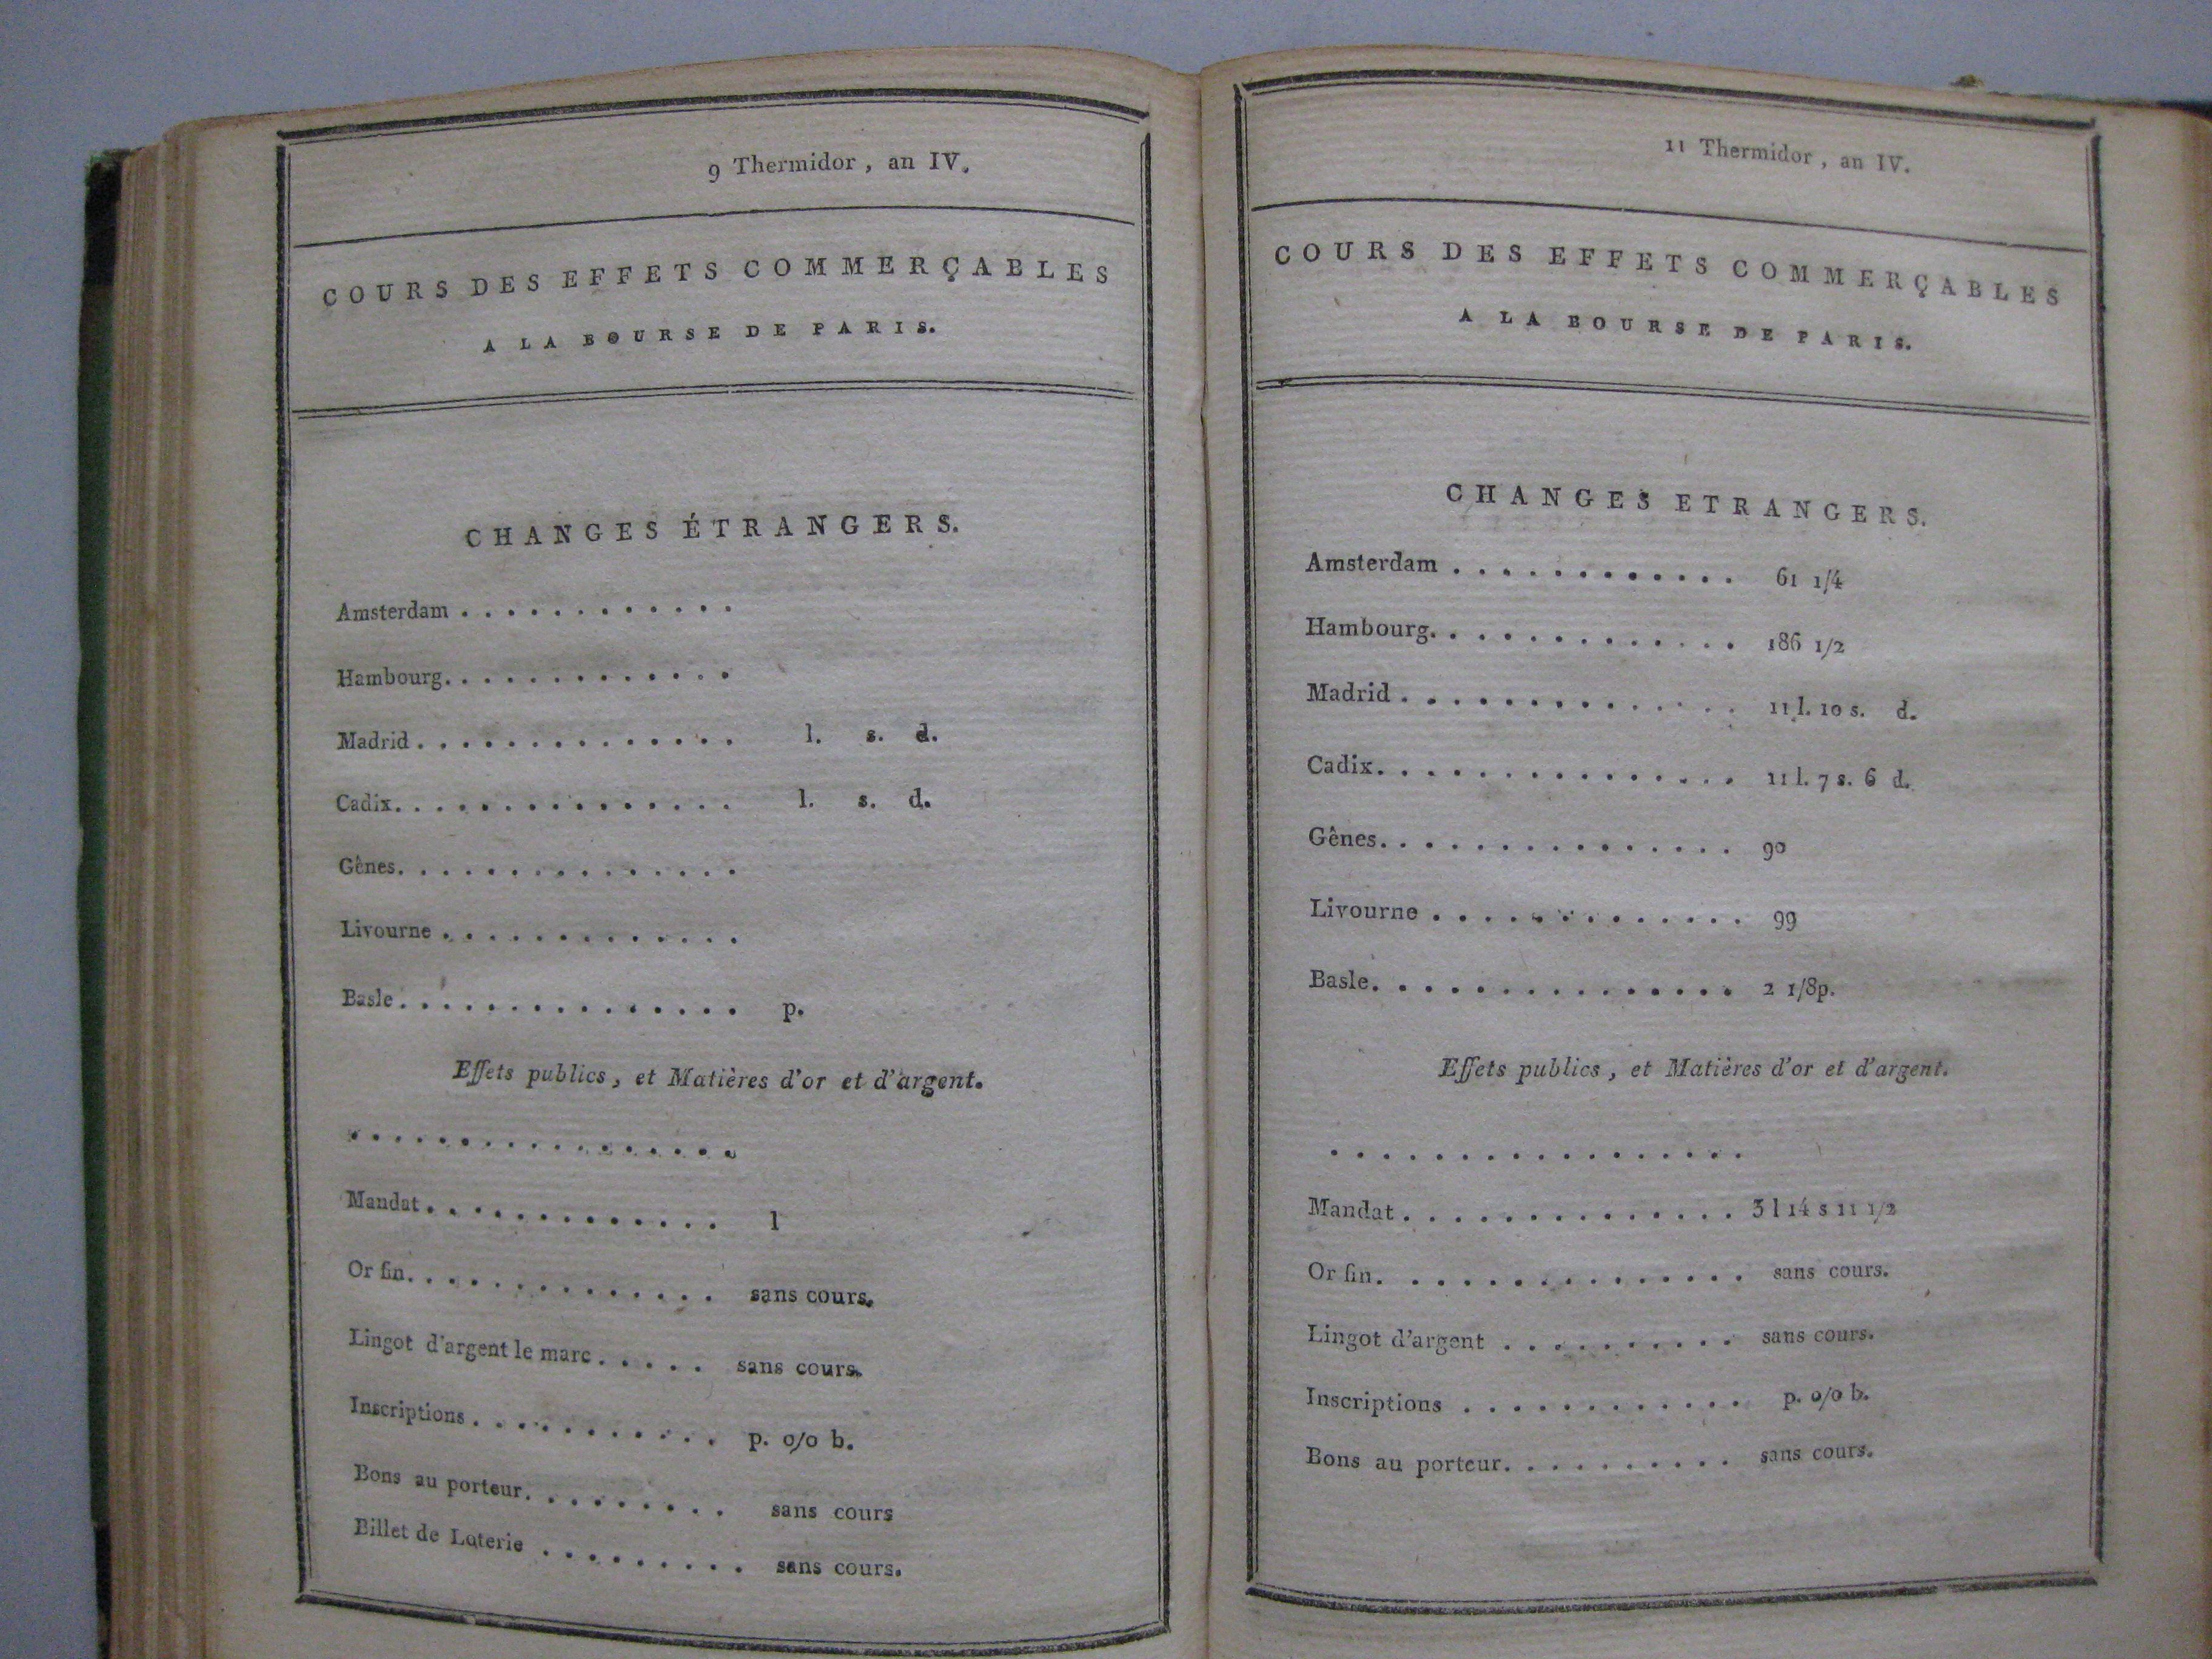 9 Thermidor, an IV.
COURS DES EFFETS COMMERÇABLES
A LA BOURSE DE PARIS.
CHANGES ÉTRANGERS.
Amsterdam . . . . . . . . . . . .
Hambourg. . . . . . . . . . . . .
Madrid . . . . . . . . . . . . . . l. s. d.
Cadix. . . . . . . . . . . . . . . l. s. d.
Gênes. . . . . . . . . . . . . . .
Livourne . . . . . . . . . . . . .
Basle . . . . . . . . . . . . . . . p.
Effets publics, et Matières d'or et d'argent.
. . . . . . . . . . . . . . . . . .
Mandat . . . . . . . . . . . . . . l
Or fin. . . . . . . . . . . . . . sans cours.
Lingot d'argent le marc . . . . . sans cours.
Inscriptions . . . . . . . . . . . p. o/o b.
Bons au porteur. . . . . . . . . sans cours
Billet de Loterie . . . . . . . . . sans cours.
11 Thermidor, an IV.
COURS DES EFFETS COMMERÇABLES
A LA BOURSE DE PARIS.
CHANGES ETRANGERS.
Amsterdam . . . . . . . . . . . . 61 1/4
Hambourg. . . . . . . . . . . . . 186 1/2
Madrid . . . . . . . . . . . . . . 11 l. 10 s. d.
Cadix. . . . . . . . . . . . . . . 11 l. 7 s. 6 d.
Gênes. . . . . . . . . . . . . . . 90
Livourne . . . . . . . . . . . . . 99
Basle. . . . . . . . . . . . . . . 2 1/8p.
Effets publics, et Matières d'or et d'argent.
. . . . . . . . . . . . . . . . .
Mandat . . . . . . . . . . . . . . 3 l 14 s 11 1/2
Or fin. . . . . . . . . . . . . . . sans cours.
Lingot d'argent . . . . . . . . . . sans cours.
Inscriptions . . . . . . . . . . . . p. o/o b.
Bons au porteur. . . . . . . . . . sans cours.